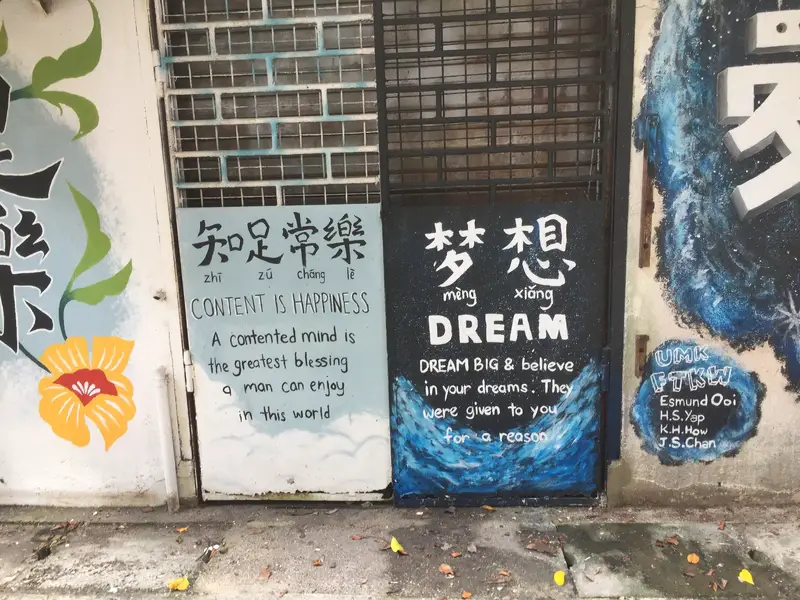 樂
知足常樂
zhī zú cháng lè
CONTENT IS HAPPINESS
A contented mind is
the greatest blessing
a man can enjoy
in this world
梦想
mèng xiǎng
DREAM
DREAM BIG & believe
in your dreams. They
were given to you
for a reason
UMK
FTKW
Esmund Ooi
H.S.Yap
K.H.How
J.S.Chan